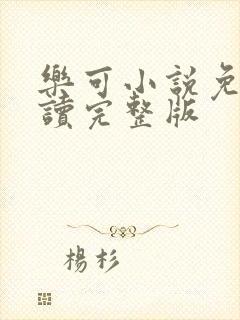 樂可小說免
讀完整版
楊杉